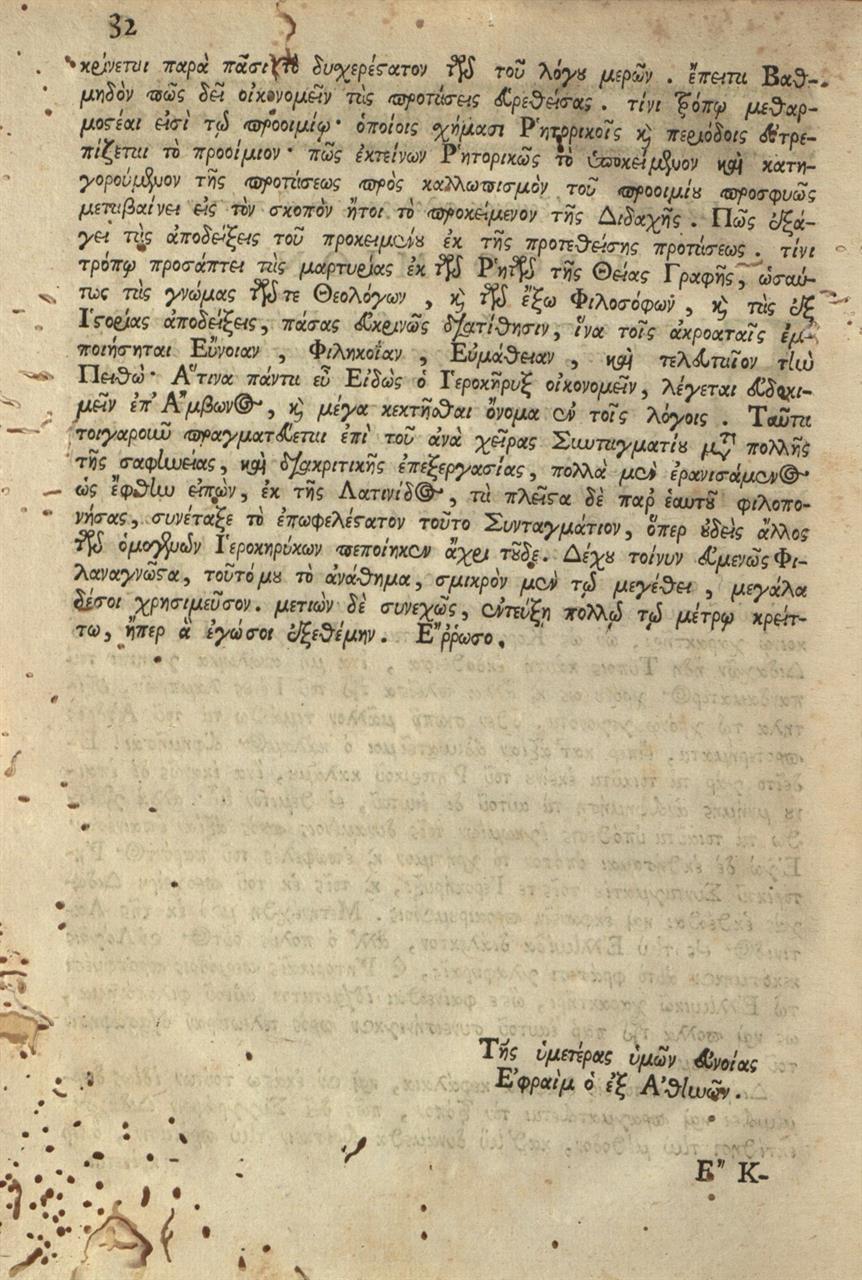 32
κρίνεται παρὰ πᾶσι τὸ δυχερέςατον τῶν τοῦ λόγου μερῶν . ἔπειτα Βαθ-
μηδὸν πῶς δεῖ οἰκονομεῖν τὰς προτάσεις εὑρεθείσας . τίνι τρόπῳ μεθαρ-
μοςέαι εἰσὶ τῷ προοιμίῳ · ὁποίοις χήμασι Ῥητορικοῖς καὶ περιόδοις εὐτρε-
πίζεται τὸ προοίμιον · πῶς ἐκτείνων Ῥητορικῶς τὸ ὑποκείμενον καὶ κατη-
γορούμενον τῆς προτάσεως πρὸς καλλωπισμὸν τοῦ προοιμίου προσφυῶς
μεταβαίνει εἰς τὸν σκοπὸν ἤτοι τὸ προκείμενον τῆς Διδαχῆς . Πῶς ἐξά-
γει τὰς ἀποδείξεις τοῦ προκειμένου ἐκ τῆς προτεθείσης προτάσεως . τίνι
τρόπῳ προσάπτει τὰς μαρτυρίας ἐκ τῶν Ῥητῶν τῆς Θείας Γραφῆς , ὡσαύ-
τως τὰς γνώμας τῶν τε Θεολόγων , καὶ τῶν ἔξω Φιλοσόφων , καὶ τὰς ἐξ
Ἱςορίας ἀποδείξεις , πάσας εὐκρινῶς διατίθησιν , ἵνα τοῖς ἀκροαταῖς ἐμ-
ποιήσηται Εὔνοιαν , Φιληκοΐαν , Εὐμάθειαν , καὶ τελευταῖον τὴν
Πειθώ · Ἅτινα πάντα εὖ Εἰδὼς ὁ Ἱεροκῆρυξ οἰκονομεῖν , λέγεται εὐδοκι-
μεῖν ἐπ' Ἄμβωνος , καὶ μέγα κεκτῆσθαι ὄνομα ἐν τοῖς λόγοις . Ταῦτα
τοιγαροῦν πραγματεύεται ἐπὶ τοῦ ἀνὰ χεῖρας Συνταγματίου μετὰ πολλῆς
τῆς σαφηνείας , καὶ διακριτικῆς ἐπεξεργασίας , πολλὰ μὲν ἐρανισάμενος
ὡς ἔφθην εἰπὼν , ἐκ τῆς Λατινίδος , τὰ πλεῖςα δὲ παρ' ἑαυτοῦ φιλοπο-
νήσας , συνέταξε τὸ ἐπωφελέςατον τοῦτο Συνταγμάτιον , ὅπερ οὐδεὶς ἄλλος
τῶν ὁμογενῶν Ἱεροκηρύκων πεποίηκεν ἄχρι τοῦδε . Δέχου τοίνυν εὐμενῶς Φι-
λαναγνῶςα , τοῦτό μου τὸ ἀνάθημα , σμικρὸν μὲν τῷ μεγέθει , μεγάλα
δέσοι χρησιμεῦσον . μετιὼν δὲ συνεχῶς , ἐντεύξῃ πολλῷ τῷ μέτρῳ κρείτ-
τω , ἤπερ ἃ ἐγώσοι ἐξεθέμην . Ἔῤῥωσο .
Τῆς ὑμετέρας ὑμῶν εὐνοίας
Ἐφραὶμ ὁ ἐξ Ἀθηνῶν .
Ε" Κ-